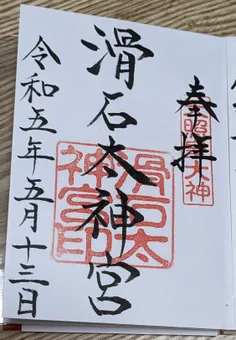 奉拝
滑石太神宮
滑石太神宮印
令和五年五月十三日